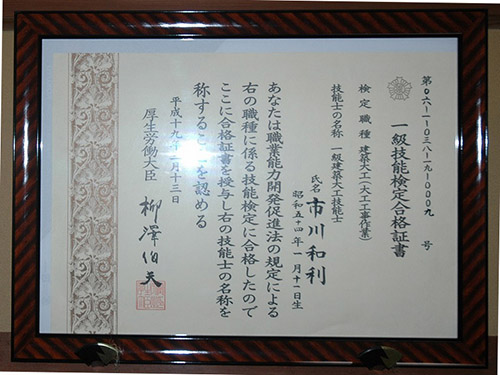 第〇六一一一〇三八一一九一〇〇〇九号
一級技能検定合格証書
検定職種 建築大工(大工工事作業)
技能士の名称 一級建築大工技能士
氏名 市川和利
昭和五十四年一月十一日生
あなたは職業能力開発促進法の規定による
右の職種に係る技能検定に合格したので
ここに合格証書を授与し右の技能士の名称を
称することを認める
平成十九年 月十三日
厚生労働大臣 柳澤伯夫